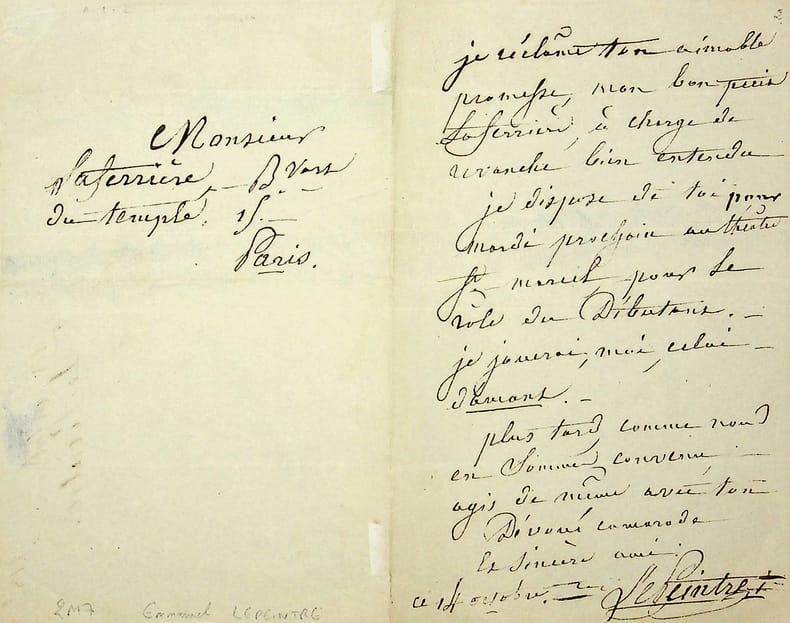 Monsieur
Laferrière, B vart
du temple, 15. —
Paris.
2M7 Emmanuel LEPEINTRE
je réclame ton aimable
promesse, mon bon petit
Laferrière, à charge de
revanche bien entendu
je dispose de toi pour
mardi prochain au théâtre
St marcel, pour le
rôle du Débutant. —
je jouerai, moi, celui —
d'amant. —
plus tard, comme nous
en sommes convenu —
agis de même avec ton
Dévoué camarade
et sincère ami.
ce 14 octobre. Lepeintre